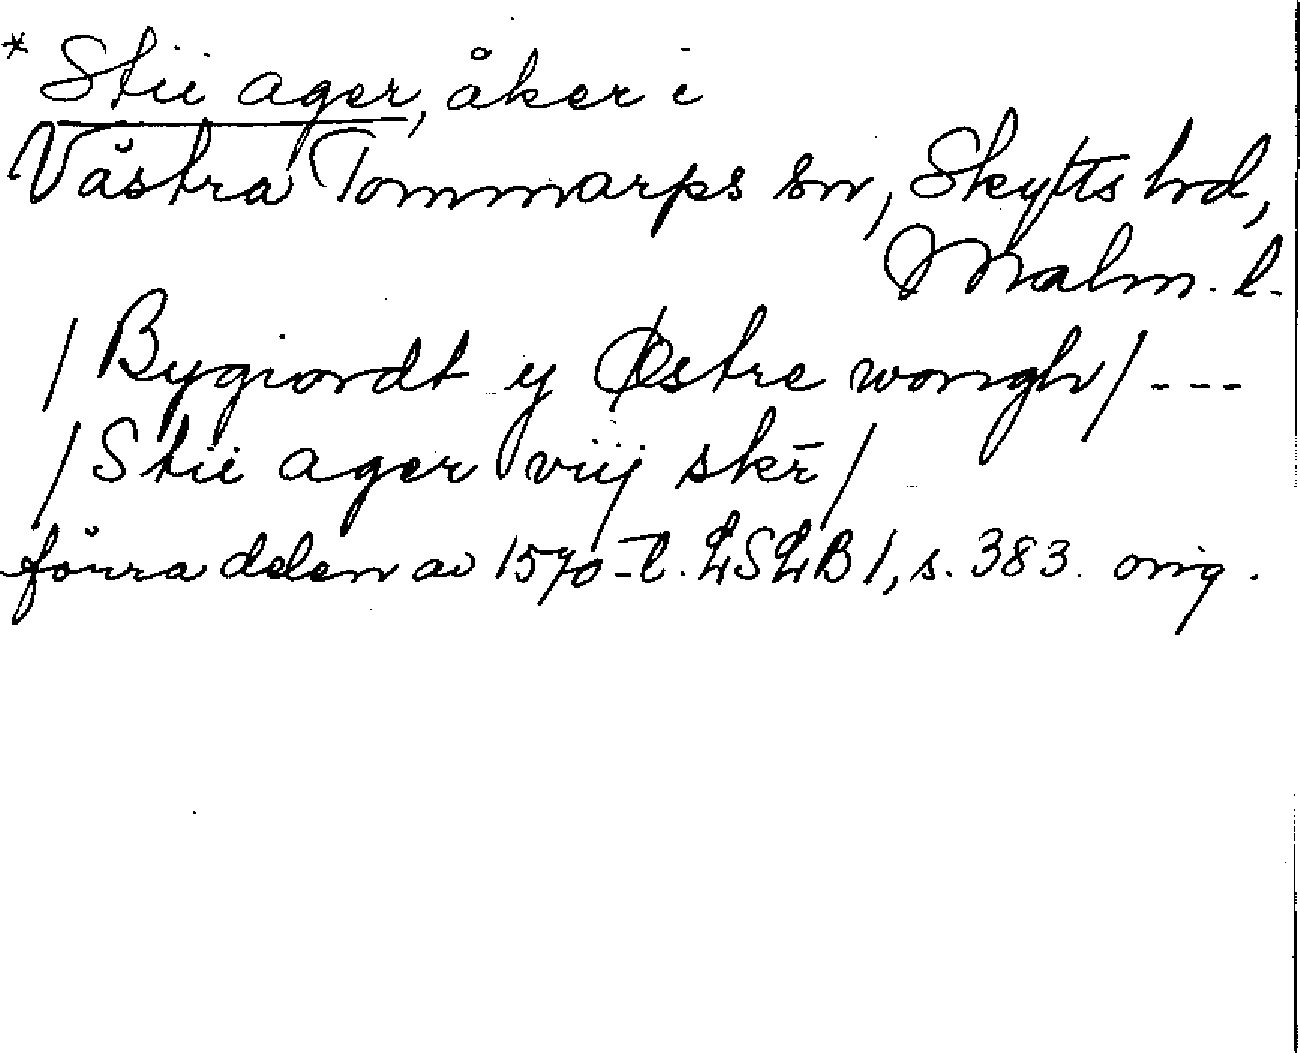 * Stii ager, åker i
Västra Tommarps sn, Skytts hd,
Malm. l.
/ Bygiordt y Østre wongh / ---
/ Stii ager viij skr̄ /
förra delen av 1570-t. LSLB 1, s. 383. orig.